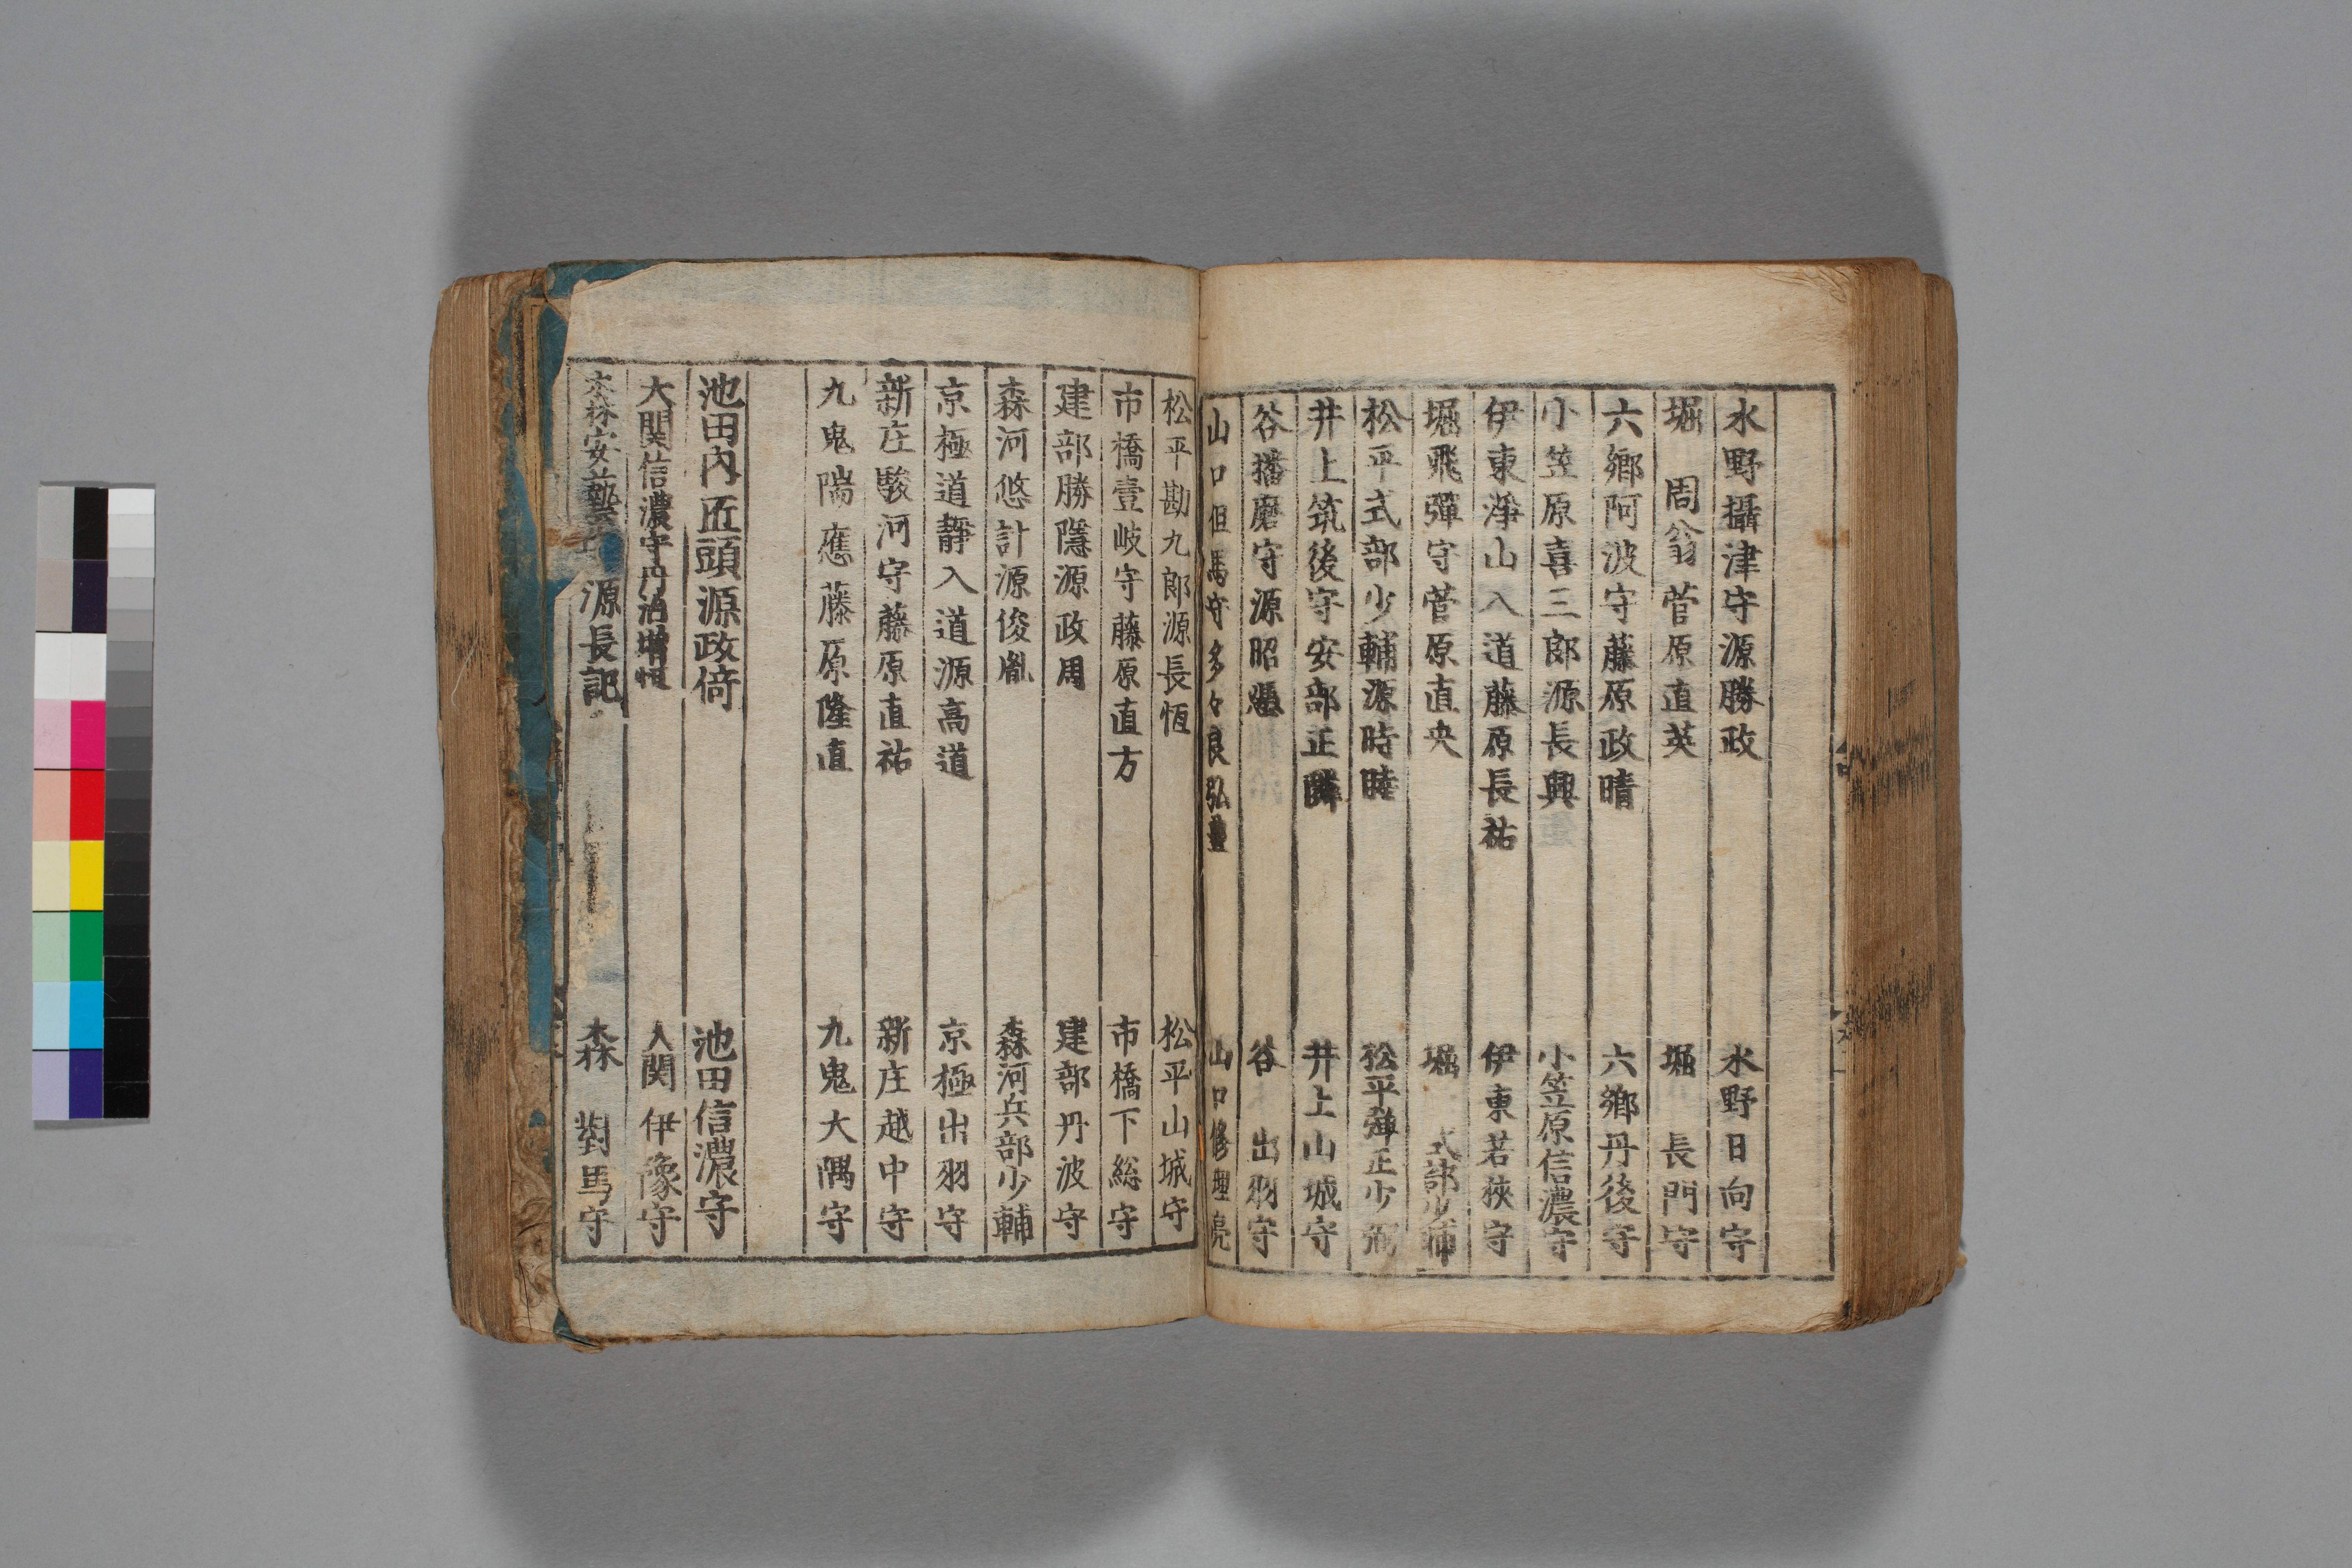 水野攝津守源勝政 水野日向守
堀 周翁菅原直英 堀 長門守
六鄉阿波守藤原政晴 六鄉丹後守
小笠原喜三郎源長興 小笠原信濃守
伊東淨山入道藤原長祐 伊東若狹守
堀飛彈守菅原直央 堀 式部少輔
松平式部少輔源時睦 松平彈正少弼
井上筑後守安部正 井上山城守
谷播磨守源昭憑 谷 出羽守
山口但馬守多々良弘豊 山口修理亮
松平勘九郎源長恆 松平山城守
市橋壹岐守藤原直方 市橋下総守
建部勝隱源政周 建部丹波守
森河悠計源俊胤 森河兵部少輔
京極道靜入道源高道 京極出羽守
新庄駿河守藤原直祐 新庄越中守
九鬼陽應藤原隆直 九鬼大隅守
池田內匠頭源政倚 池田信濃守
大関信濃守丹治增恒 大関伊豫守
森安藝守源長記 森 對馬守